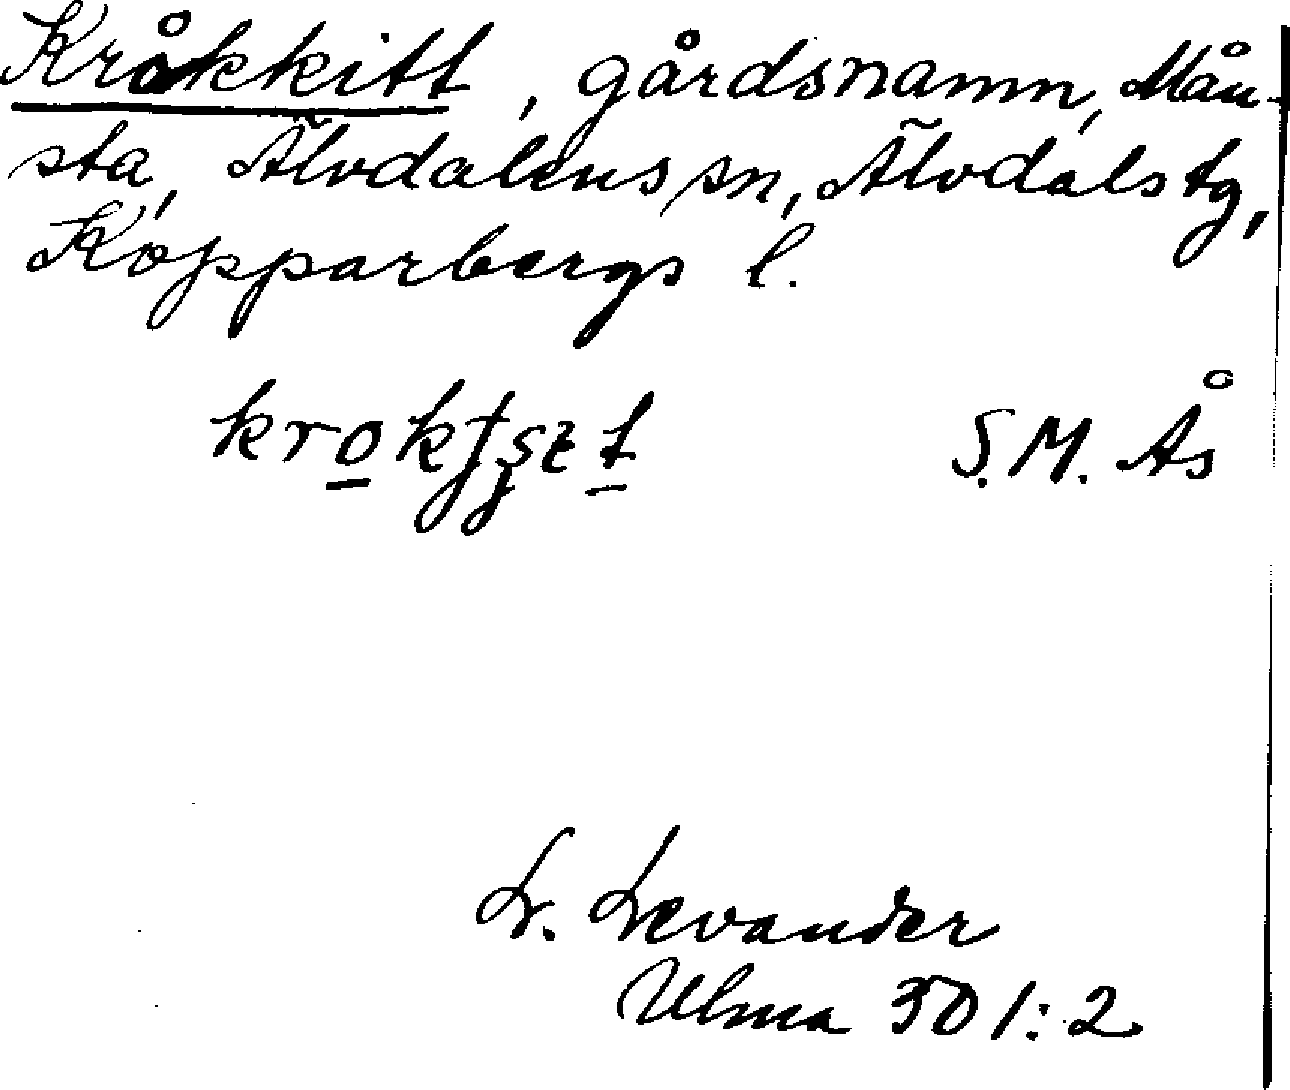 Kråkkitt, gårdsnamn, Mån-
sta, Älvdalens sn, Älvdals tg,
Kopparbergs l.
S.M. Ås
L. Levander
Ulma 501:2